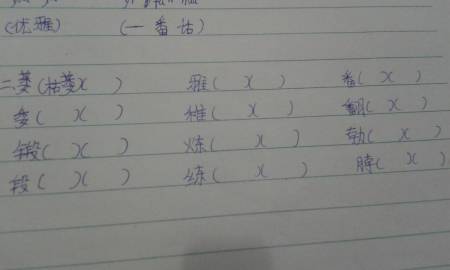 (优雅) (一番话)
二、萎(枯萎)( ) 雅( )( ) 番( )( )
委( )( ) 稚( )( ) 翻( )( )
锻( )( ) 炼( )( ) 勃( )( )
段( )( ) 练( )( ) 脖( )( )